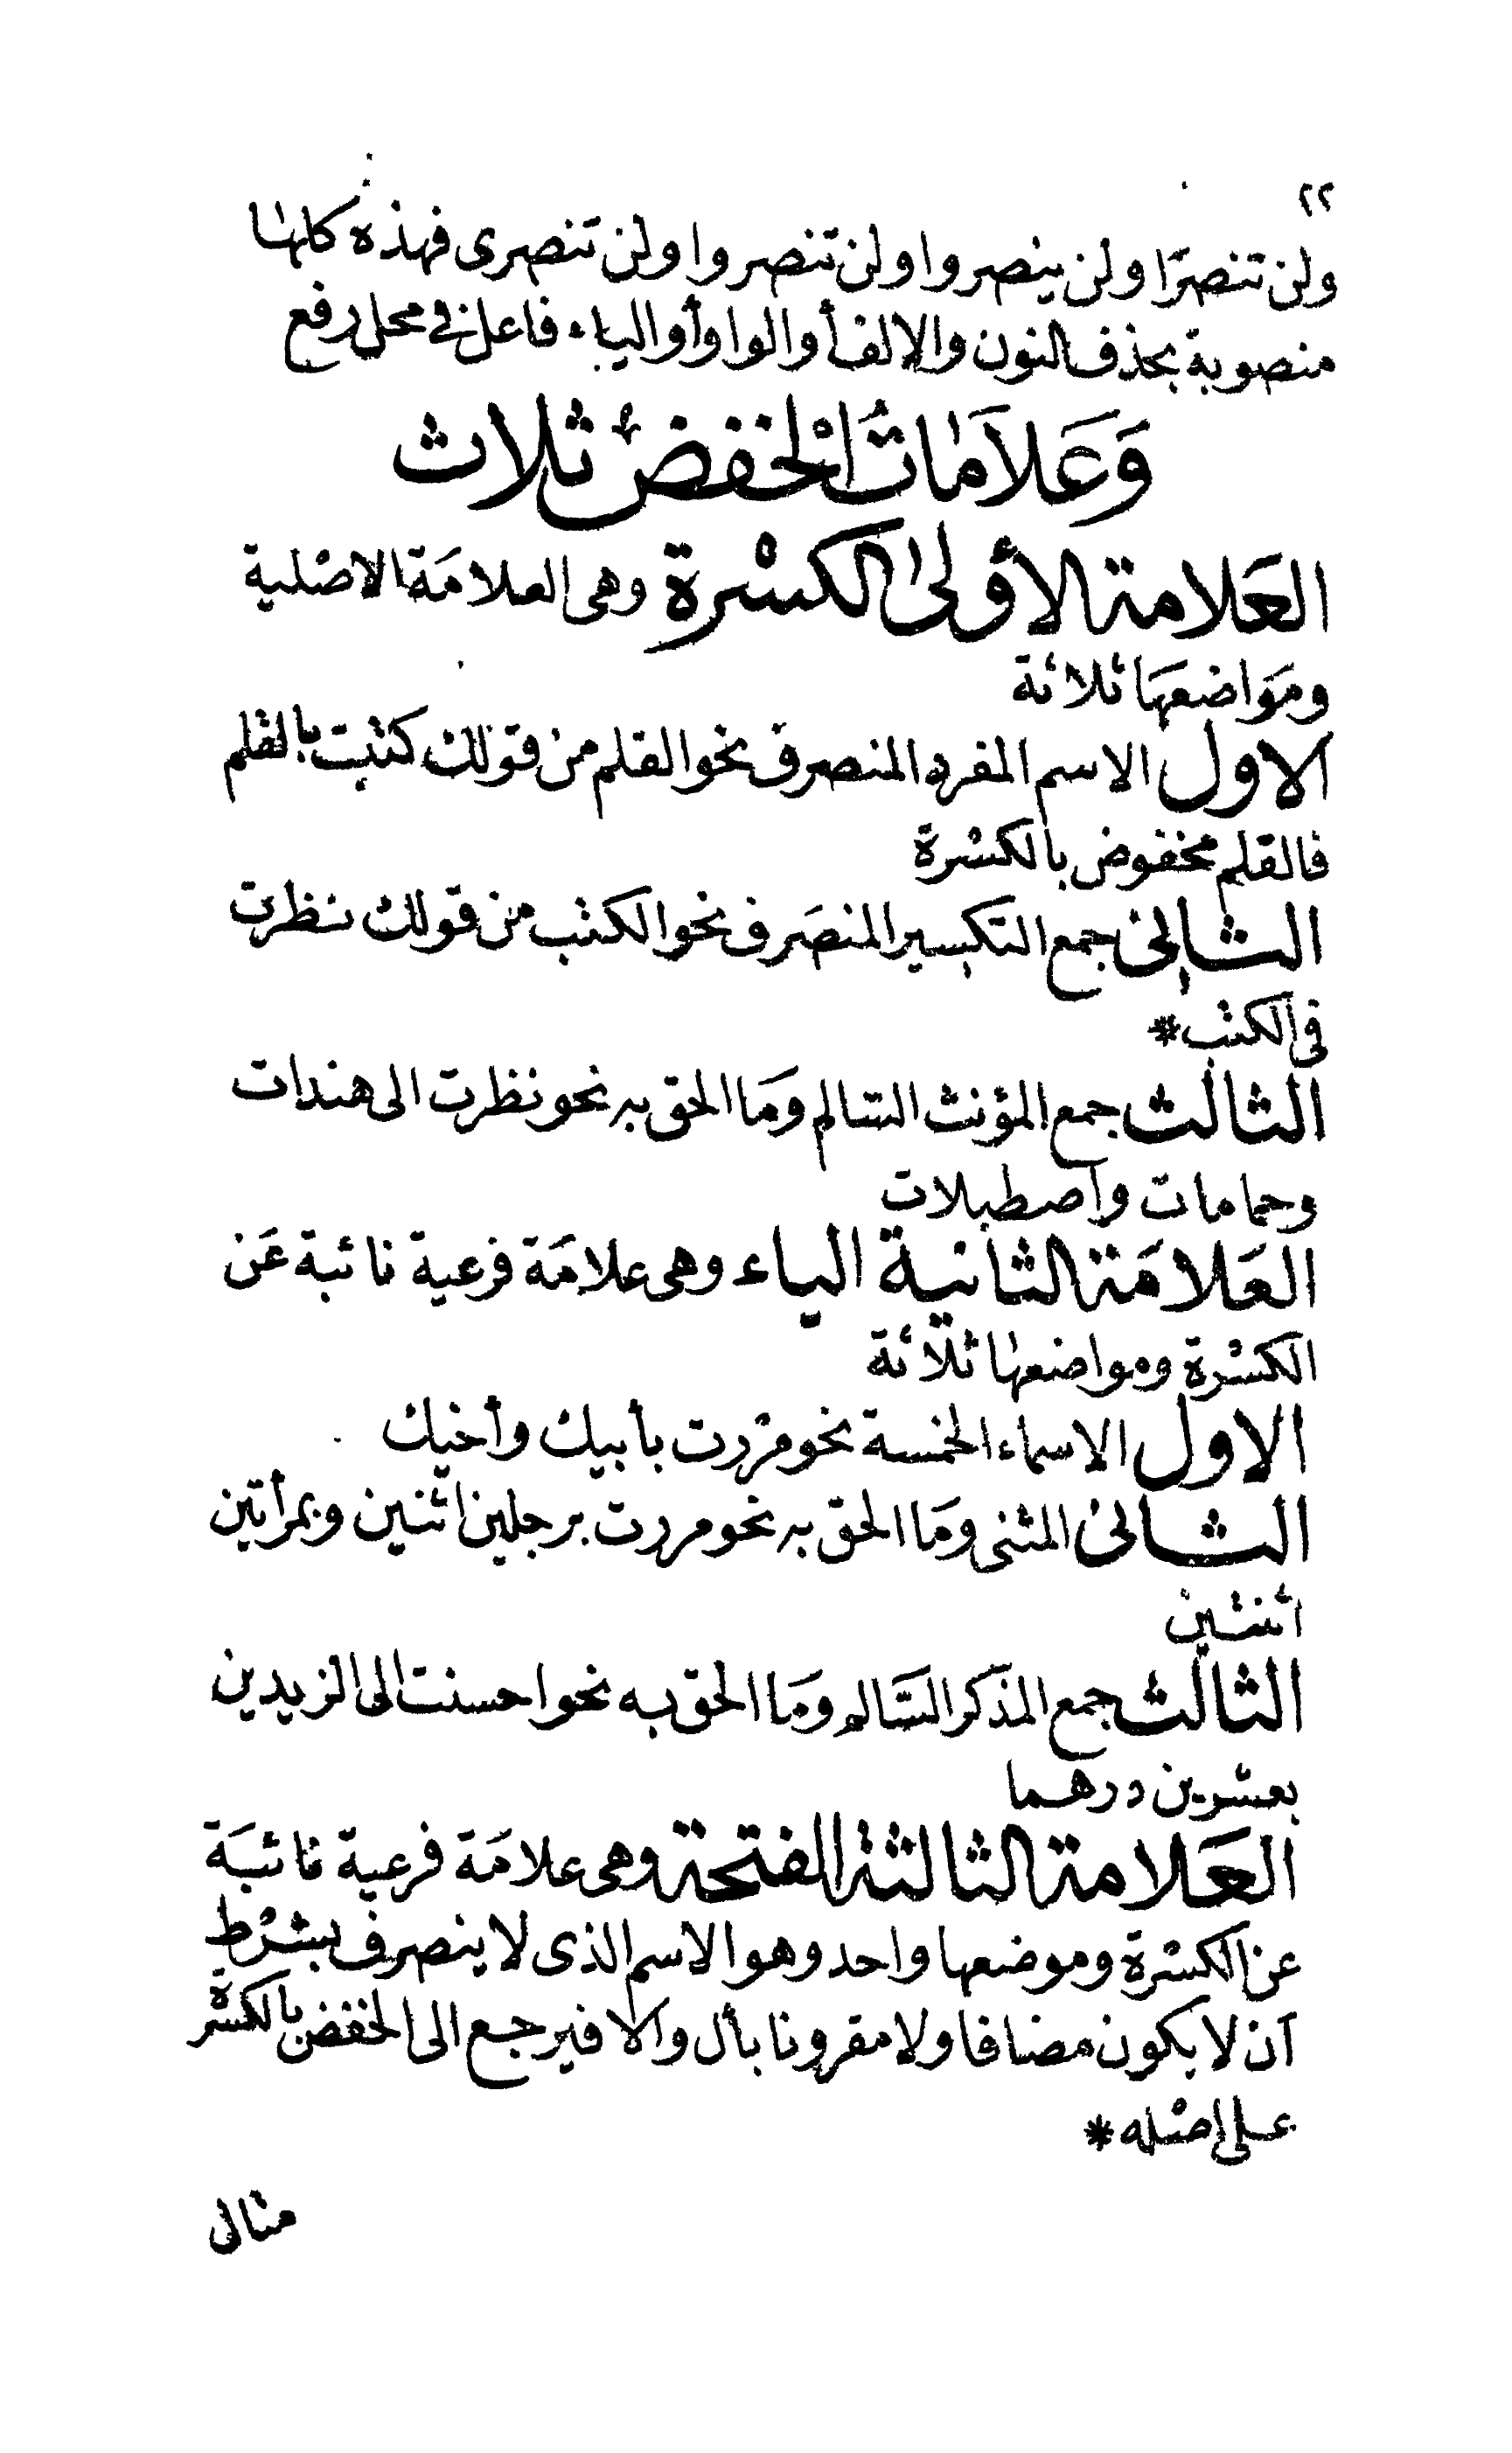 ٢٢
ولن تنصرا ولن ينصروا ولن تنصروا ولن تنصرى فهذه كلها
منصوبة بحذف النون والالف أو الواو أو الياء فاعل فى محل رفع
وَعَلَامَاتُ الْخفض ثلاث
العَلامة الأولى الكسْرة وهى العلامَة الاصْلية
ومَوَاضعهَا ثلاثة
الاول الاسم المفرد المنصرف نحو القلم من قولك كتبت بالقلم
فالقلم مخفوض بالكسْرة
الثانى جمع التكسير المنصَرف نحو الكتب من قولك نظرت
فى الكتب *
الثالث جمع المؤنث السالم ومَا الحق به نحو نظرت الى هندات
وحمامات واصطبلات
العَلامَة الثانية الياء وهى علامَة فرعية نائبة عَن
الكسْرة ومواضعها ثلاثة
الاول الاسماء الخمسة نحو مررت بأبيك وأخيك
الثانى المثنى ومَا الحق به نحو مررت برجلين اثنين وبمرأتين
اثنتين
الثالث جمع المذكر السَّالم ومَا الحق به نحو احسنت الى الزيدين
بعشرين درهما
العَلامة الثالثة الفتحة وهى علامَة فرعية نائبَة
عن الكسْرة وموضعها واحد وهو الاسم الذى لا ينصرف بشرْط
أن لا يكون مضافا ولا مقرونا بأل والا فيرجع الى الخفض بالكسْرة
على اصْله *
مثال